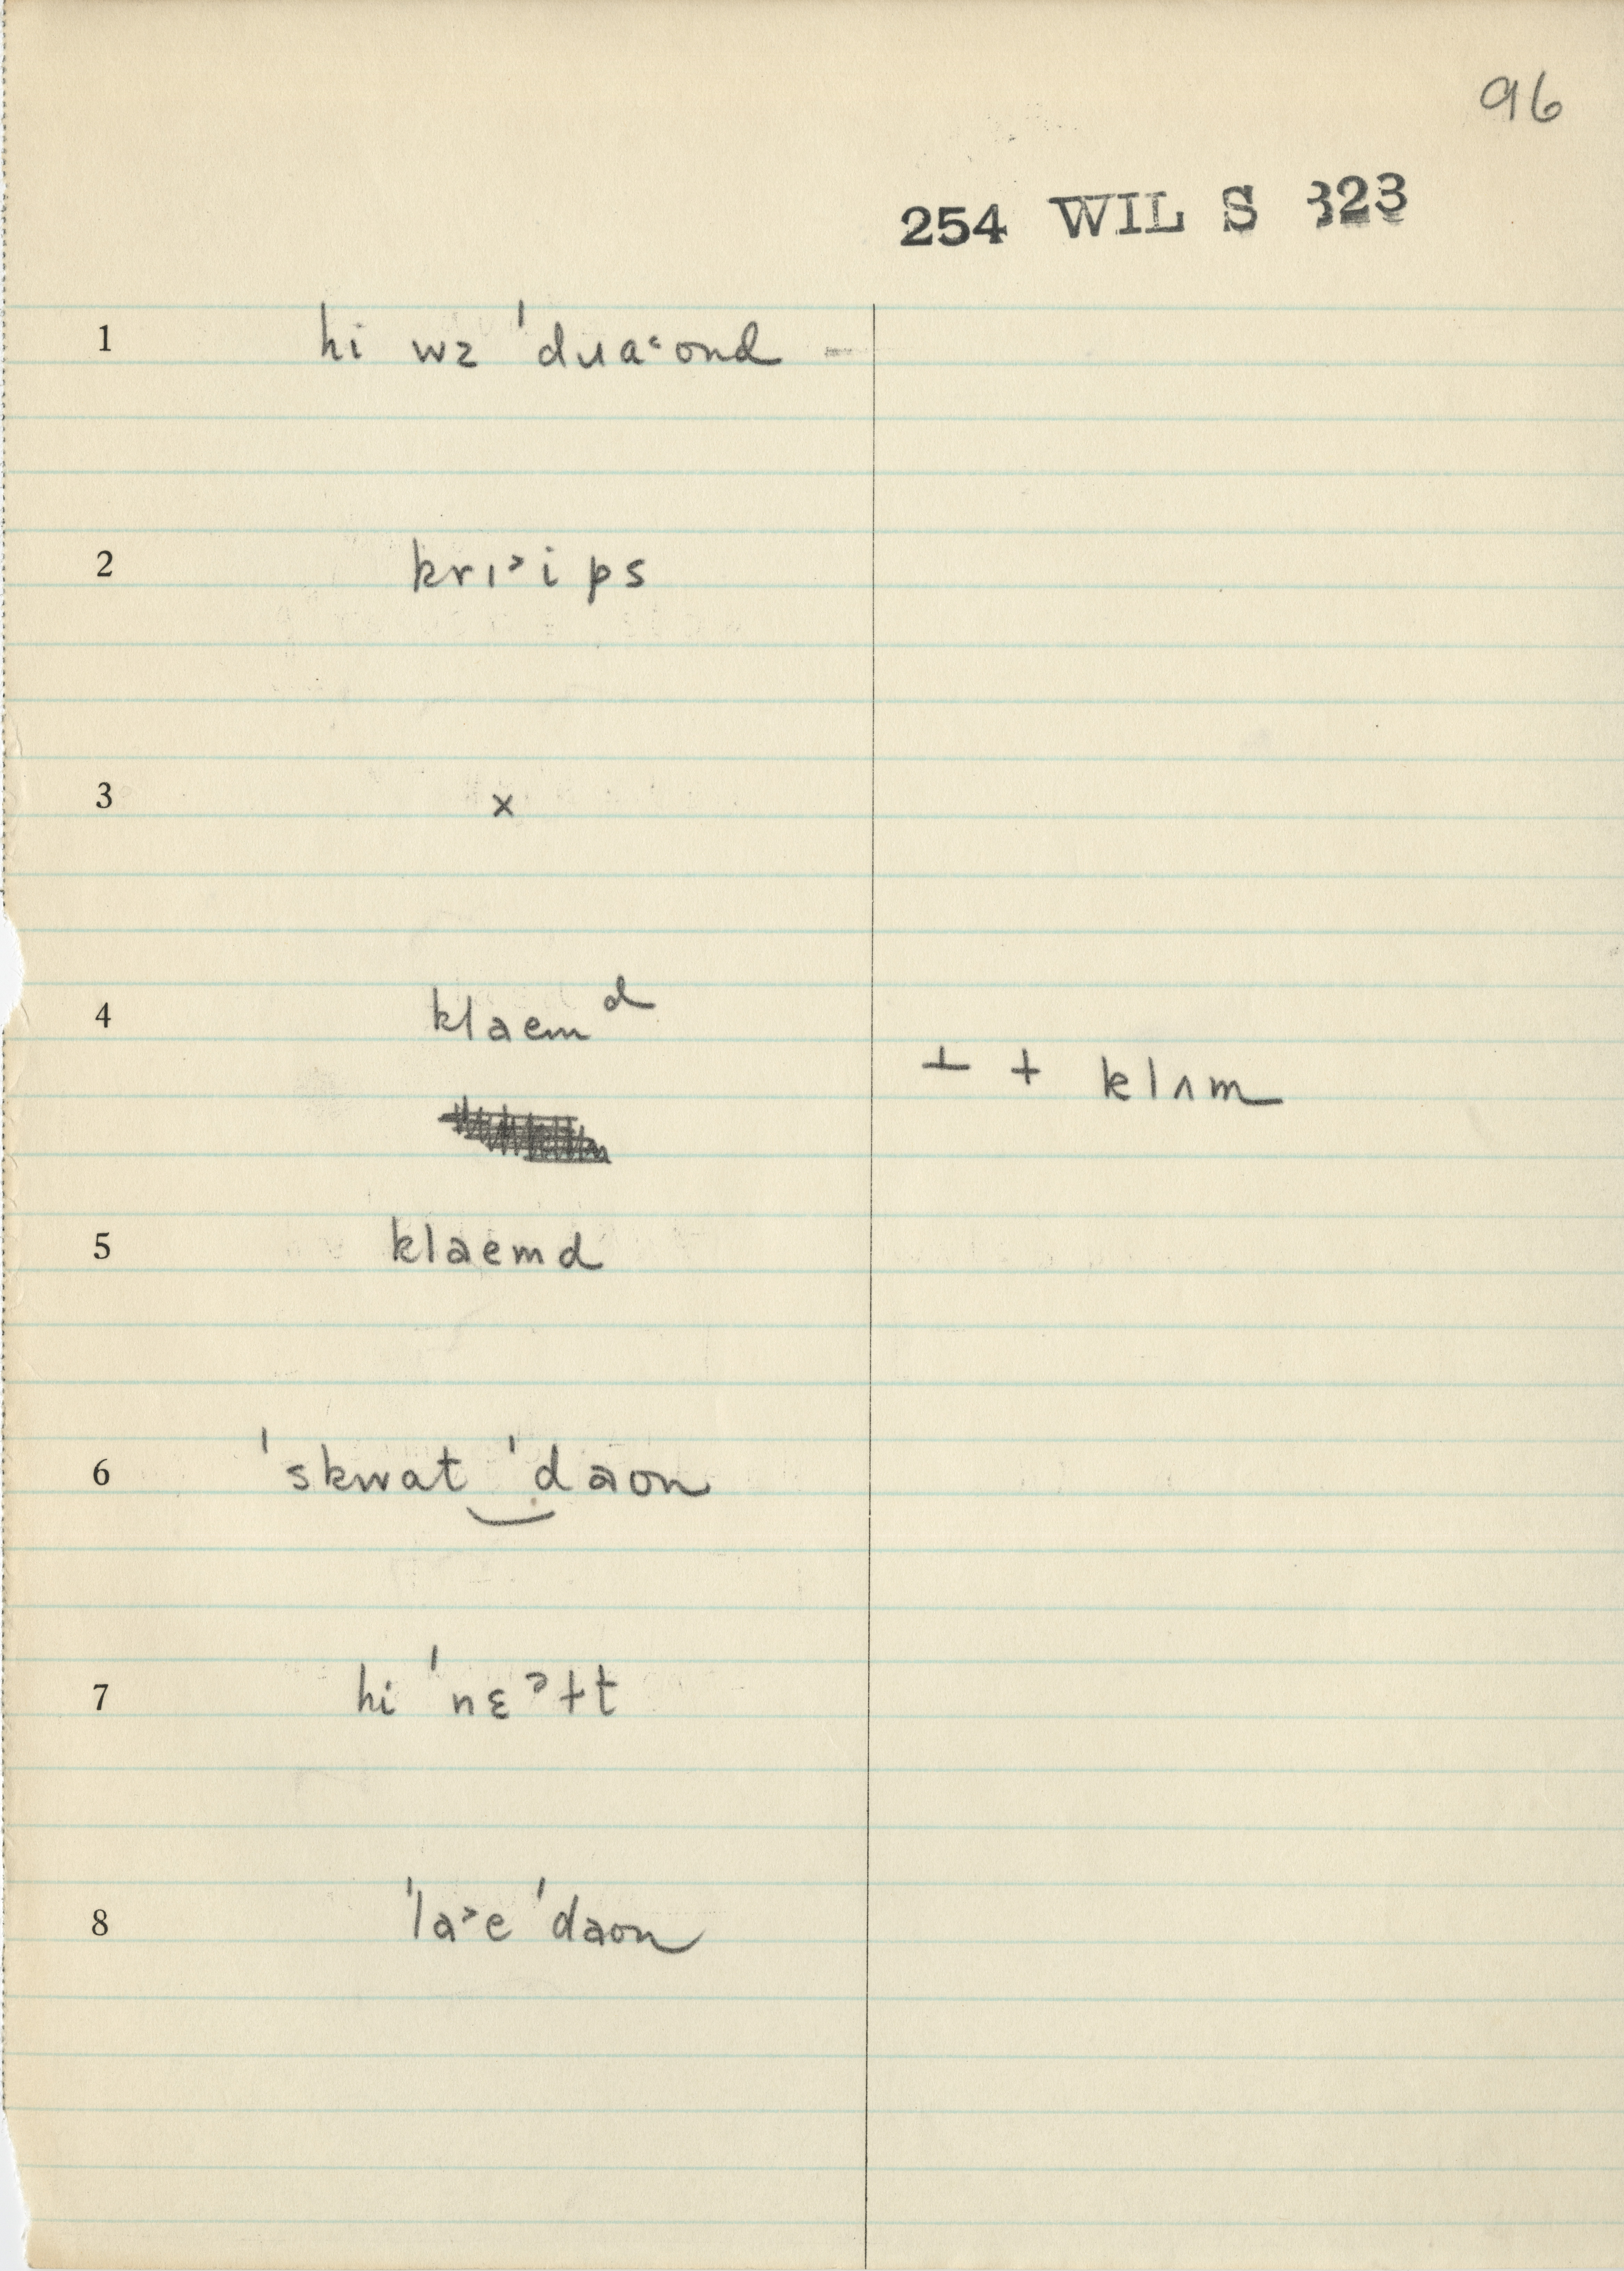 96
254 WIL S 323
1 hi wz ˈduaˁond –
2 krɪ˃ips
3 x
4 klaem ᵈ
⊥ + klʌm
5 klaemd
6 ˈskwat‿ˈdaon
7 hi ˈnɛˀɫt
8 ˈla˃e ˈdaon